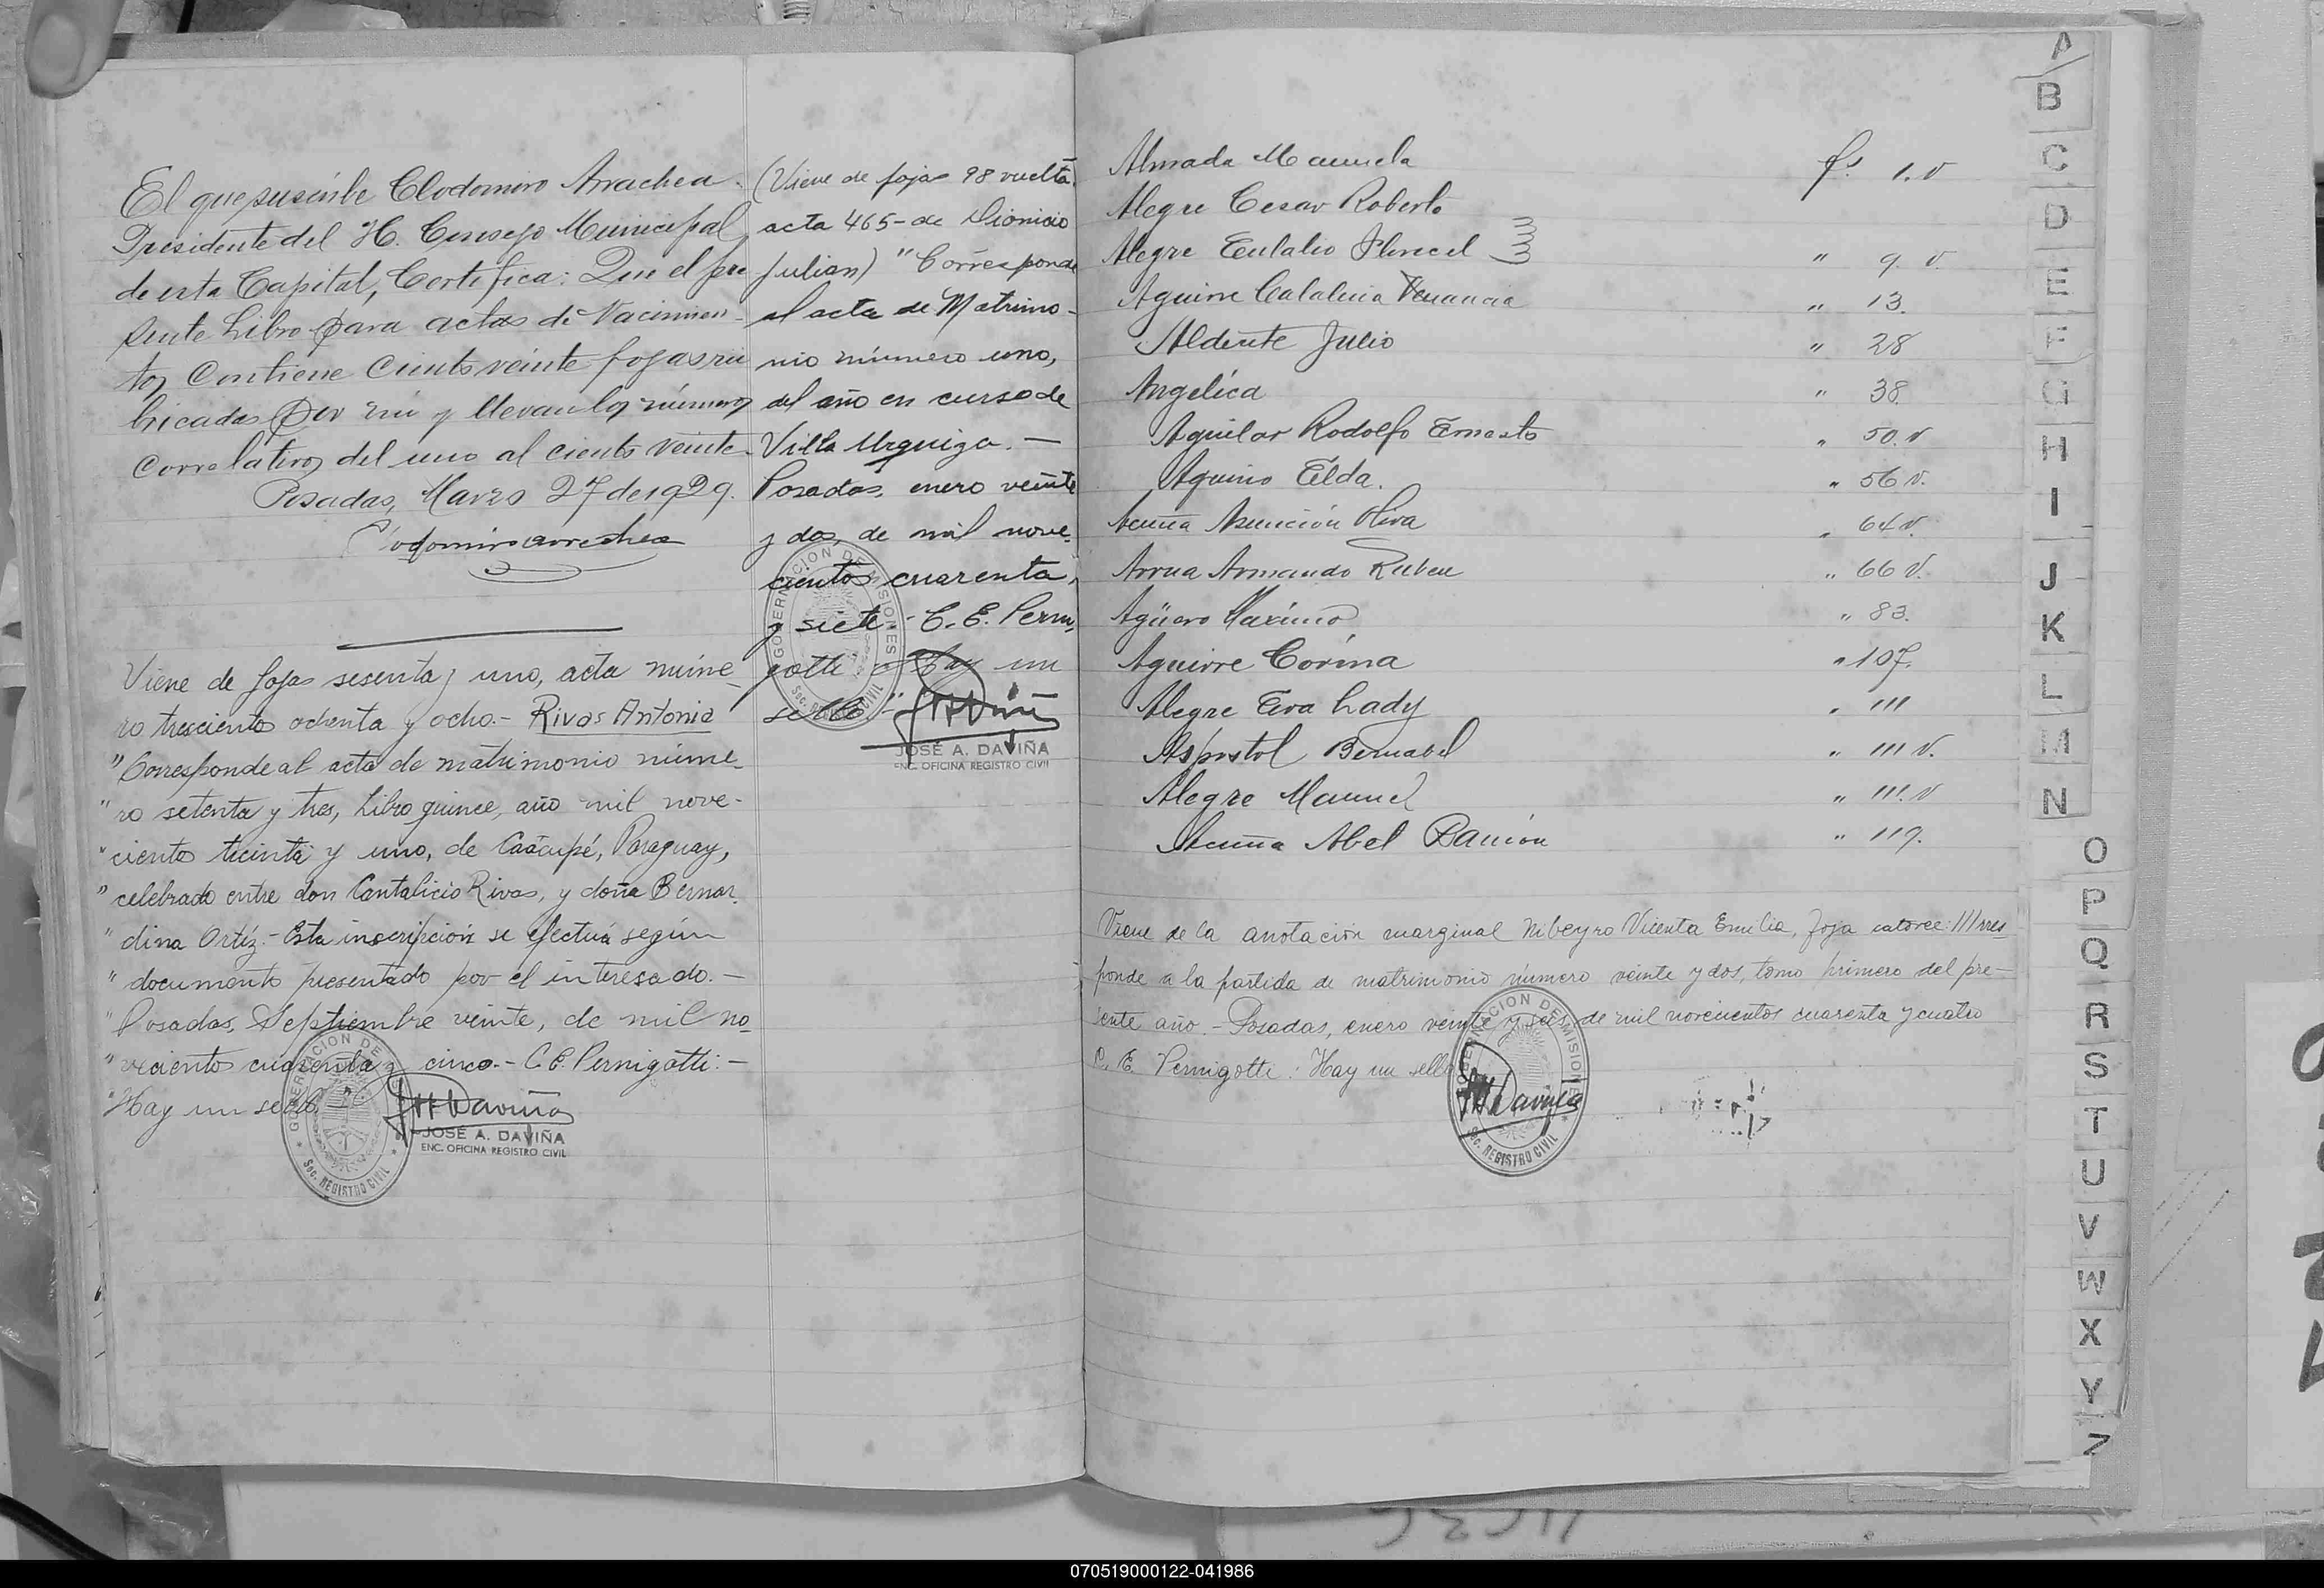 El que suscribe Clodomiro Arrachea
Presidente del H. Consejo Municipal
de esta Capital, Certifica: Que el pre
sente Libro para actas de Nacimien-
tos Contiene Ciento veinte fojas rú
bricadas por mí y llevan los números
Correlativos del uno al ciento veinte
Posadas, Marzo 27 de 1929.
Clodomiro Arrechea
Viene de fojas sesenta y uno, acta núme
ro trescientos ochenta y ocho.- Rivas Antonia
"Corresponde al acta de matrimonio núme-
"ro setenta y tres, Libro quince, año mil nove-
"cientos treinta y uno, de Caacupé, Paraguay,
"celebrado entre don Cantalicio Rivas, y doña Bernar-
"dina Ortíz.- Esta inscripción se efectuá según
"documento presentado por el interesado.-
"Posadas, Septiembre veinte, de mil no-
"vecientos cuarenta y cinco.- C.E. Pernigotti:-
"Hay un sello.-"
GOBERNACION DE MISIONES
Sec. REGISTRO CIVIL
JOSÉ A. DAVIÑA
ENC. OFICINA REGISTRO CIVIL
(Viene de fojas 98 vuelta
acta 465- de Dionicio
Julian) "Corresponde
al acta de Matrimo-
nio número uno,
del año en curso de
Villa Urquiza.-
Posadas, enero veinte
y dos, de mil nove-
cientos cuarenta,
y siete.- C.E. Perni
gotti Hay un
sello.-"
GOBERNACION DE MISIONES
Sec. REGISTRO CIVIL
JOSÉ A. DAVIÑA
ENC. OFICINA REGISTRO CIVIL
Almada Manuela fs. 1.v
Alegre Cesar Roberto
Alegre Eulalio " 9. v.
Aguirre Catalina Venancia " 13.
Aldente Julio " 28
Angélica " 38
Aguilar Rodolfo Ernesto " 50.v
Aquino Elda. " 56 v.
Acuña Asunción Oliva " 64 v.
Arrua Armando Ruben " 66 v.
Agüero Maximo " 83.
Aguirre Corina " 107.
Alegre Eva Lady " 111
Aspostol Bernabel " 111 v.
Alegre Manuel " 111.v
Acuña Abel Ramón " 119.
Viene de la anotación marginal Nibeyro Vicenta Emilia, foja catorce:
ponde a la partida de matrimonio número veinte y dos, tomo primero del pre-
sente año.- Posadas, enero veinte y seis de mil novecientos cuarenta y cuatro
C. E. Pernigotti: Hay un sello
GOBERNACION DE MISIONES
Sec. REGISTRO CIVIL
A
B
C
D
E
F
G
H
I
J
K
L
M
N
O
P
Q
R
S
T
U
V
W
X
Y
Z
070519000122-041986